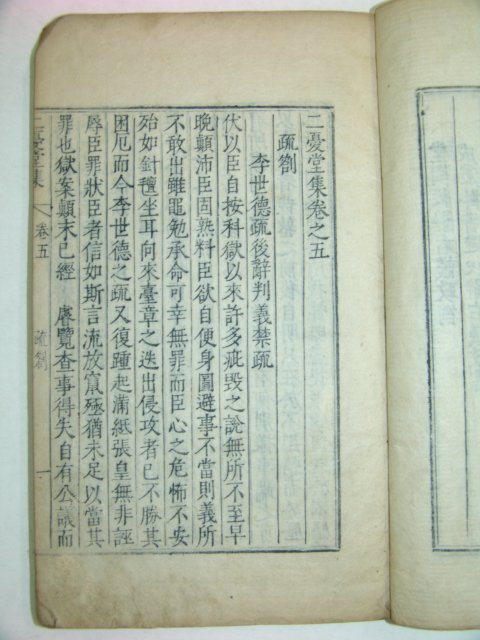 二憂堂集卷之五
疏劄
李世德疏後辭判義禁疏
伏以臣自按科獄以來許多疵毁之說無所不至早
晩顚沛臣固熟料臣欲自便身圖避事不當則義所
不敢出雖黽勉承命可幸無罪而臣心之危怖不安
殆如針氊坐耳向來臺章之迭出侵攻者已不勝其
困厄而今李世德之疏又復踵起滿紙張皇無非誣
辱臣罪狀臣者信如斯言流放竄殛猶未足以當其
罪也獄案顚末已經 睿覽查事得失自有公議而
二憂堂集 卷五 疏劄 一